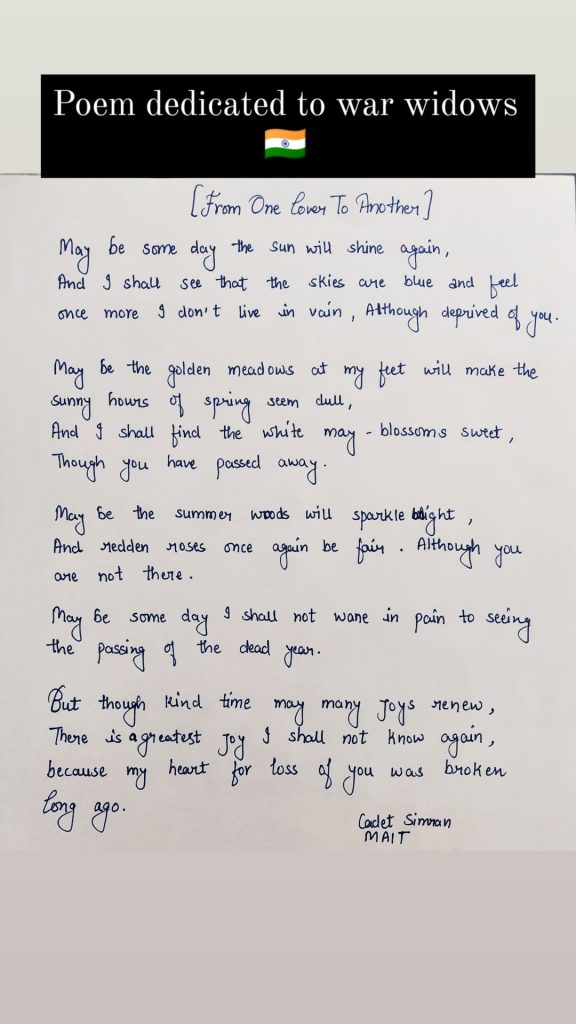 Poem dedicated to war widows
🇮🇳
[From One Lover To Another]
May be some day the sun will shine again,
And I shall see that the skies are blue and feel
once more I don't live in vain, Although deprived of you.
May be the golden meadows at my feet will make the
sunny hours of spring seem dull,
And I shall find the white may-blossoms sweet,
Though you have passed away.
May be the summer woods will sparkle bright,
And redden roses once again be fair. Although you
are not there.
May be some day I shall not wane in pain to seeing
the passing of the dead year.
But though kind time may many joys renew,
There is a greatest joy I shall not know again,
because my heart for loss of you was broken
long ago.
Cadet Simran
MAIT